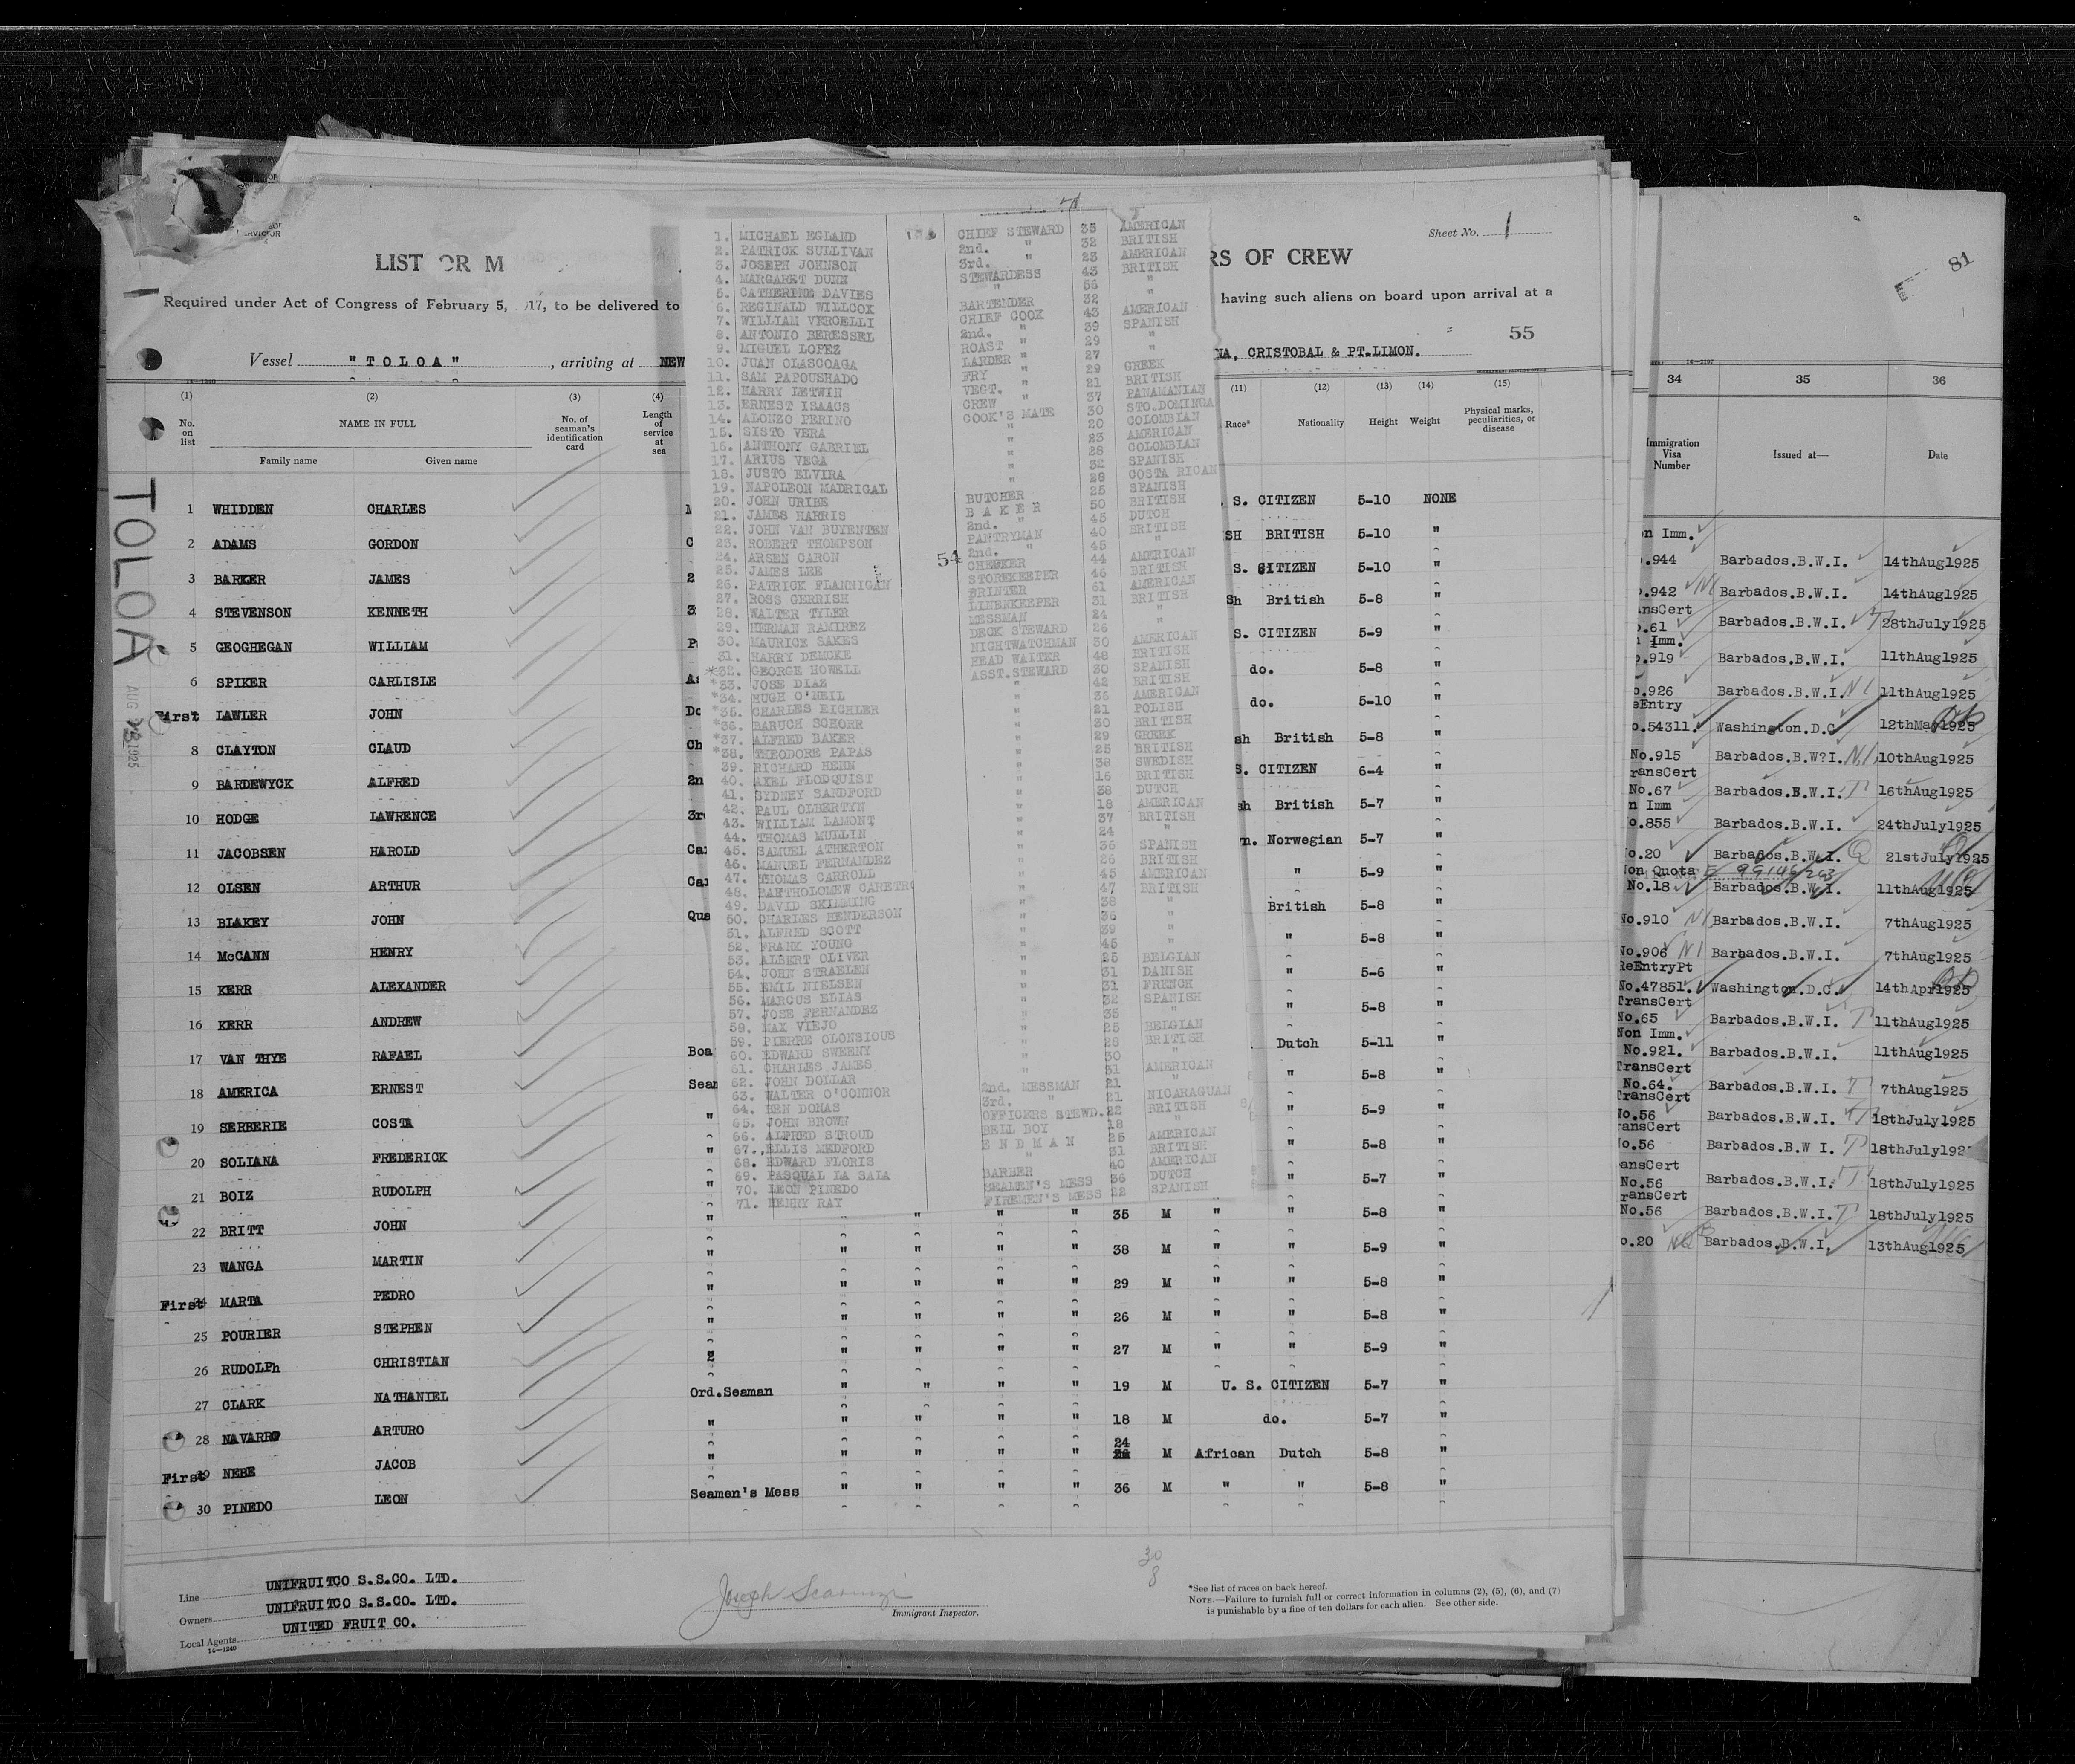 Sheet No. 1
LIST OR M
RS OF CREW
Required under Act of Congress of February 5, 17, to be delivered to
having such aliens on board upon arrival at a
55
Vessel "TOLOA", arriving at NEW
NA, CRISTOBAL & PT.LIMON.
TOLOA
AUG 1925
(1) (2) (3) (4)
No. on list
NAME IN FULL
Family name Given name
No. of seaman's identification card
Length of service at sea
(11) (12) (13) (14) (15)
Race* Nationality Height Weight Physical marks, peculiarities, or disease
1 WHIDDEN CHARLES S. CITIZEN 5-10 NONE
2 ADAMS GORDON SH BRITISH 5-10 "
3 BARKER JAMES S. CITIZEN 5-10 "
4 STEVENSON KENNETH Sh British 5-8 "
5 GEOGHEGAN WILLIAM S. CITIZEN 5-9 "
6 SPIKER CARLISLE do. 5-8 "
First LAWLER JOHN do. 5-10 "
8 CLAYTON CLAUD Ch sh British 5-8 "
9 BARDEWYCK ALFRED 2n S. CITIZEN 6-4 "
10 HODGE LAWRENCE 3r sh British 5-7 "
11 JACOBSEN HAROLD Ca n. Norwegian 5-7 "
12 OLSEN ARTHUR Ca " 5-9 "
13 BLAKEY JOHN Qua British 5-8 "
14 McCANN HENRY " 5-8 "
15 KERR ALEXANDER " 5-6 "
16 KERR ANDREW " 5-8 "
17 VAN THYE RAFAEL Boa Dutch 5-11 "
18 AMERICA ERNEST Sean " 5-8 "
19 SERBERIE COSTA " " 5-9 "
20 SOLIANA FREDERICK " " 5-8 "
21 BOIZ RUDOLPH " " 5-7 "
22 BRITT JOHN " " " " " 35 M " " 5-8 "
23 WANGA MARTIN " " " " " 38 M " " 5-9 "
First 24 MARTA PEDRO " " " " " 29 M " " 5-8 "
25 POURIER STEPHEN " " " " " 26 M " " 5-8 "
26 RUDOLPh CHRISTIAN " " " " 27 M " " 5-9 "
27 CLARK NATHANIEL Ord.Seaman " " " " 19 M U. S. CITIZEN 5-7 "
28 NAVARRO ARTURO " " " " " 18 M do. 5-7 "
First 29 NEBE JACOB " " " " " 24 M African Dutch 5-8 "
30 PINEDO LEON Seamen's Mess " " " " 36 M " " 5-8 "
1. MICHAEL EGLAND CHIEF STEWARD 35 AMERICAN
2. PATRICK SULLIVAN 2nd. " 32 BRITISH
3. JOSEPH JOHNSON 3rd. " 23 AMERICAN
4. MARGARET DUNN STEWARDESS 43 BRITISH
5. CATHERINE DAVIES " 56 "
6. REGINALD WILLCOX BARTENDER 32 "
7. WILLIAM VERCELLI CHIEF COOK 43 AMERICAN
8. ANTONIO BERESSEL 2nd. " 39 SPANISH
9. MIGUEL LOPEZ ROAST " 29 "
10. JUAN OLASCOAGA LARDER " 27 "
11. SAM PAPOUSHADO FRY " 29 GREEK
12. HARRY LETWIN VEGT. " 21 BRITISH
13. ERNEST ISAACS CREW " 37 PANAMANIAN
14. ALONZO PERINO COOK'S MATE 30 STO.DOMINGA
15. SISTO VERA " 20 COLOMBIAN
16. ANTHONY GABRIEL " 23 AMERICAN
17. ARIUS VEGA " 28 COLOMBIAN
18. JUSTO ELVIRA " 32 SPANISH
19. NAPOLEON MADRIGAL " 28 COSTA RICAN
20. JOHN URIBE BUTCHER 25 SPANISH
21. JAMES HARRIS BAKER 50 BRITISH
22. JOHN VAN BUYENTEN 2nd. " 45 DUTCH
23. ROBERT THOMPSON PANTRYMAN 40 BRITISH
24. ARSEN CARON 54 2nd. " 45 "
25. JAMES LEE CHECKER 44 AMERICAN
26. PATRICK FLANNIGAN STOREKEEPER 46 BRITISH
27. ROSS GERRISH PRINTER 61 AMERICAN
28. WALTER TYLER LINENKEEPER 31 BRITISH
29. HERMAN RAMIREZ MESSMAN 24 "
30. MAURICE SAKES DECK STEWARD 26
31. HARRY DEMCKE NIGHTWATCHMAN 30 AMERICAN
*32. GEORGE HOWELL HEAD WAITER 48 BRITISH
*33. JOSE DIAZ ASST.STEWARD 30 SPANISH
*34. HUGH O'NEIL " 42 BRITISH
*35. CHARLES EICHLER " 36 AMERICAN
*36. BARUCH SCHORR " 21 POLISH
*37. ALFRED BAKER " 30 BRITISH
*38. THEODORE PAPAS " 29 GREEK
39. RICHARD HENN " 25 BRITISH
40. AXEL FLODQUIST " 38 SWEDISH
41. SYDNEY SANDFORD " 16 BRITISH
42. PAUL OLBERTYN " 38 DUTCH
43. WILLIAM LAMONT " 18 AMERICAN
44. THOMAS MULLIN " 37 BRITISH
45. SAMUEL ATHERTON " 24 "
46. MANUEL FERNANDEZ " 36 SPANISH
47. THOMAS CARROLL " 26 BRITISH
48. BARTHOLOMEW CARETRO " 45 AMERICAN
49. DAVID SKIMMING " 47 BRITISH
50. CHARLES HENDERSON " 38 "
51. ALFRED SCOTT " 36 "
52. FRANK YOUNG " 39 "
53. ALBERT OLIVER " 45 "
54. JOHN STRAELEN " 25 BELGIAN
55. EMIL NIELSEN " 31 DANISH
56. MARCUS ELIAS " 31 FRENCH
57. JOSE FERNANDEZ " 32 SPANISH
58. MAX VIEJO " 35 "
59. PIERRE OLONSIOUS " 25 BELGIAN
60. EDWARD SWERNY " 28 BRITISH
61. CHARLES JAMES " 30 "
62. JOHN DOLLAR " 31 AMERICAN
63. WALTER O'CONNOR 2nd. MESSMAN 21 "
64. BEN DOMAS 3rd. " 21 NICARAGUAN
65. JOHN BROWN OFFICERS STEWD. 22 BRITISH
66. ALFRED STROUD BELL BOY 18 "
67. ELLIS MEDFORD ENDMAN 25 AMERICAN
68. EDWARD FLORIS " 31 BRITISH
69. PASQUAL LA SALA BARBER 40 AMERICAN
70. LEON PINEDO SEAMEN'S MESS 36 DUTCH
71. HENRY RAY FIREMEN'S MESS 22 SPANISH
81
34 35 36
Immigration Visa Number Issued at— Date
on Imm.
.944 Barbados.B.W.I. 14thAug1925
.942 Barbados.B.W.I. 14thAug1925
ansCert
.61 Barbados.B.W.I. 28thJuly1925
n Imm.
.919 Barbados.B.W.I. 11thAug1925
o.926 Barbados.B.W.I. 11thAug1925
eEntry
o.54311. Washington.D.C 12thMay1925
No.915 Barbados.B.W?I. 10thAug1925
ransCert
No.67 Barbados.B.W.I. 16thAug1925
n Imm
o.855 Barbados.B.W.I. 24thJuly1925
o.20 Barbados.B.W.I. 21stJuly1925
Non Quota
No.18 Barbados.B.W.I. 11thAug1925
No.910 Barbados.B.W.I. 7thAug1925
No.906 Barbados.B.W.I. 7thAug1925
ReEntryPt
No.47851. Washington.D.C. 14thApr1925
TransCert
No.65 Barbados.B.W.I. 11thAug1925
Non Imm.
No.921. Barbados.B.W.I. 11thAug1925
TransCert
No.64. Barbados.B.W.I. 7thAug1925
TransCert
No.56 Barbados.B.W.I. 18thJuly1925
ansCert
o.56 Barbados.B.W I. 18thJuly192
ansCert
No.56 Barbados.B.W.I. 18thJuly1925
ransCert
No.56 Barbados.B.W.I. 18thJuly1925
o.20 Barbados.B.W.I, 13thAug1925
30
8
Line UNIFRUITCO S.S.CO. LTD.
Owners UNIFRUITCO S.S.CO. LTD.
Local Agents UNITED FRUIT CO.
14—1240
Joseph
Immigrant Inspector.
*See list of races on back hereof.
NOTE.—Failure to furnish full or correct information in columns (2), (5), (6), and (7)
is punishable by a fine of ten dollars for each alien. See other side.